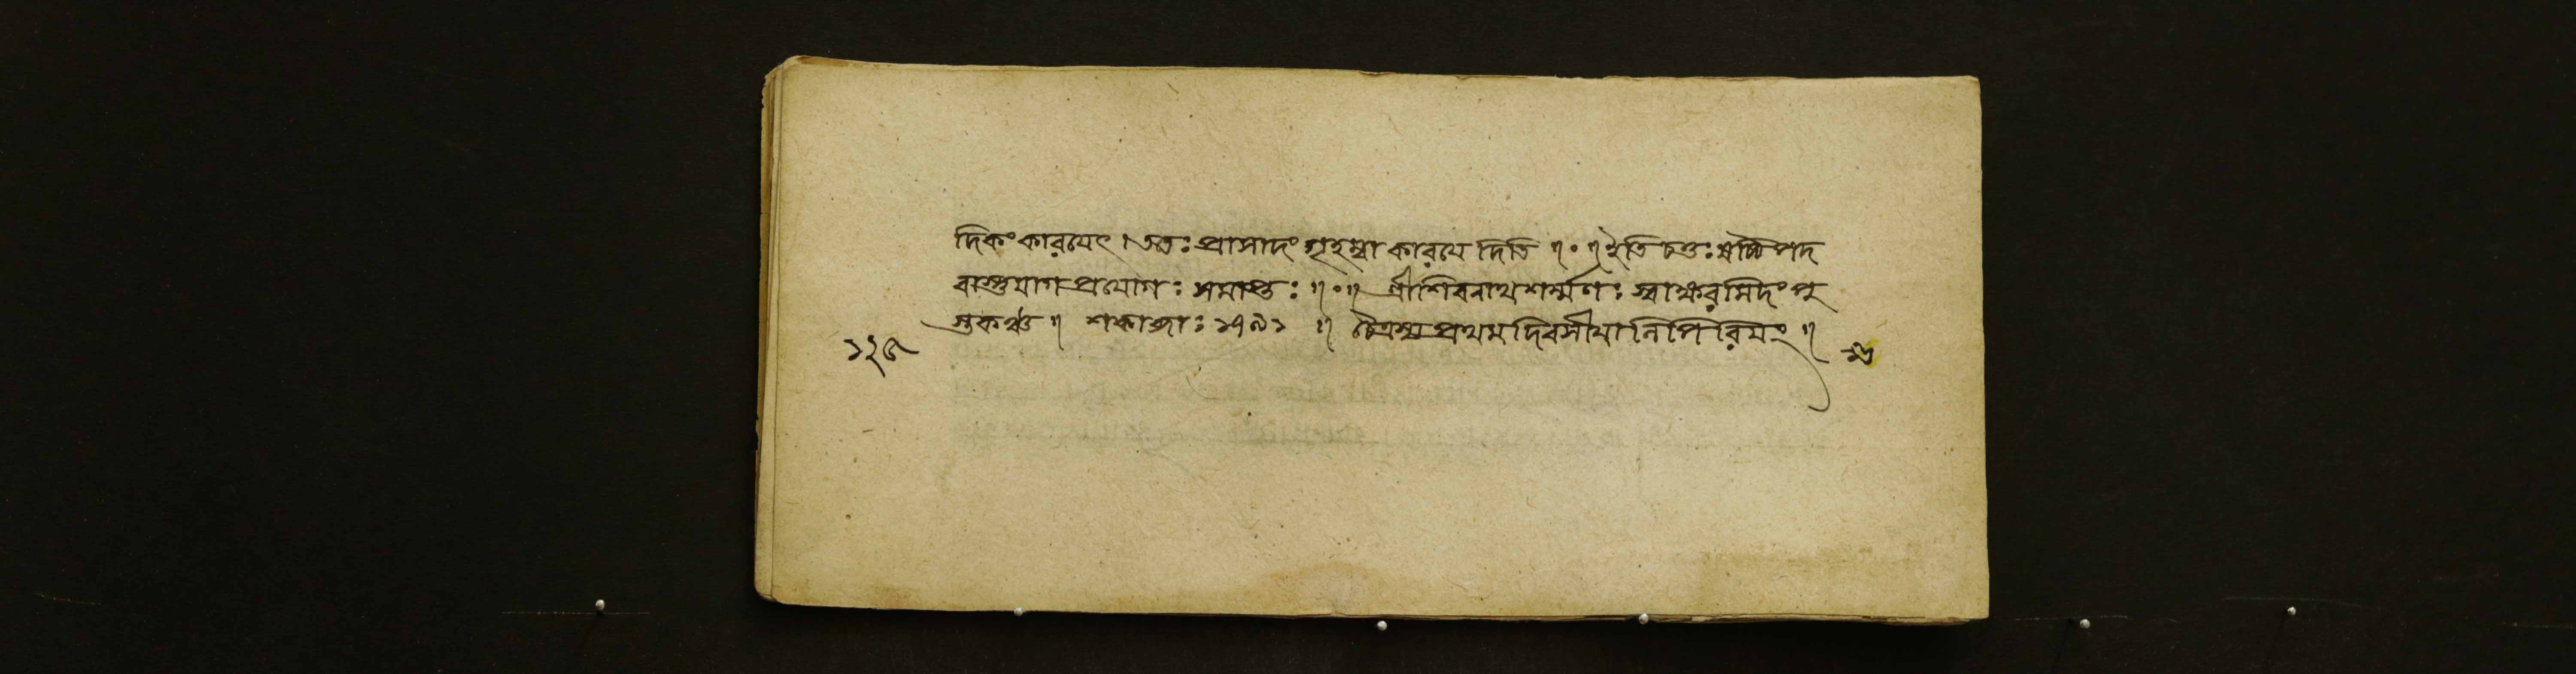 দিকং কারয়েৎ । ততঃ প্রাসাদং গৃহম্বা কারয়ে দিতি ॥ ॰ ॥ ইতি চতুঃষষ্টিপদ
বাস্তুযাগপ্রয়োগঃ সমাপ্তঃ ॥ ॰ ॥ শ্রীশিবনাথশর্ম্মণঃ স্বাক্ষরমিদং পু
স্তকঞ্চ ॥ শকাব্দাঃ ১৭৯১ ॥ চৈত্রস্য প্রথম দিবসীয়া লিপিরিয়ং ॥